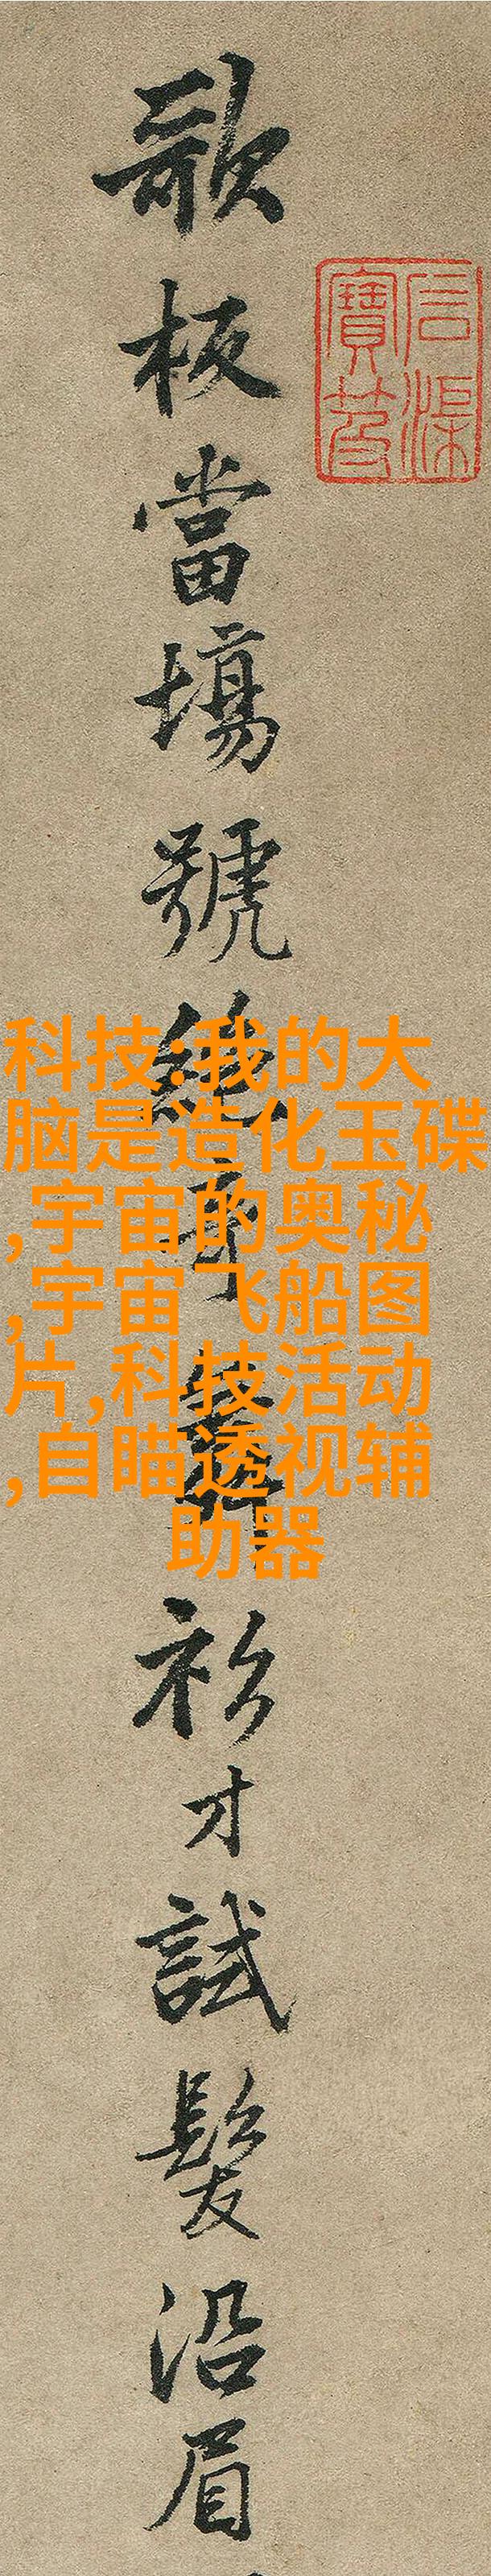 石渠
寶笈
歌板當場號絶奇舞衫才試髮沿眉
科技:我的大
脑是造化玉碟
,宇宙的奥秘
,宇宙飞船图
片,科技活动
,自瞄透视辅
助器